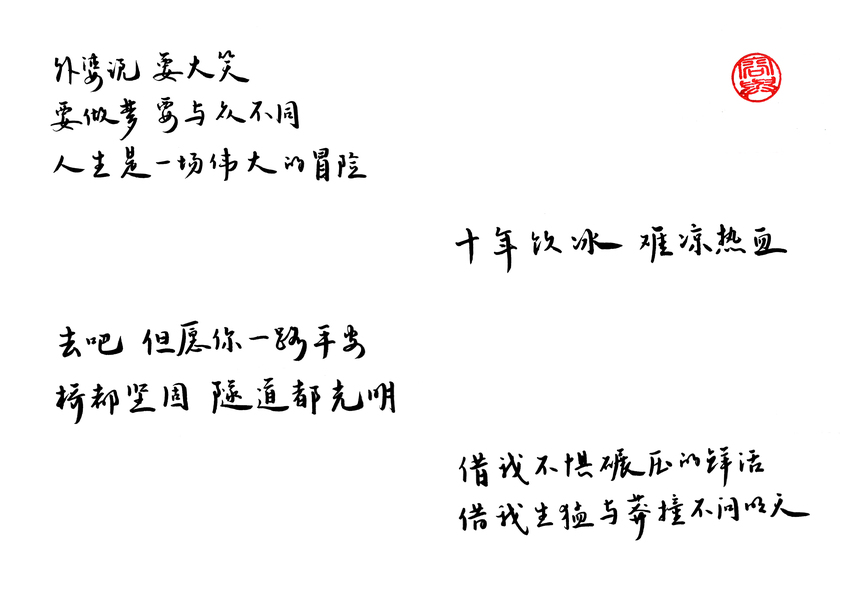 外婆说 要大笑
要做梦 要与众不同
人生是一场伟大的冒险
十年饮冰 难凉热血
去吧 但愿你一路平安
桥都坚固 隧道都光明
借我不惧碾压的鲜活
借我生猛与莽撞不问明天